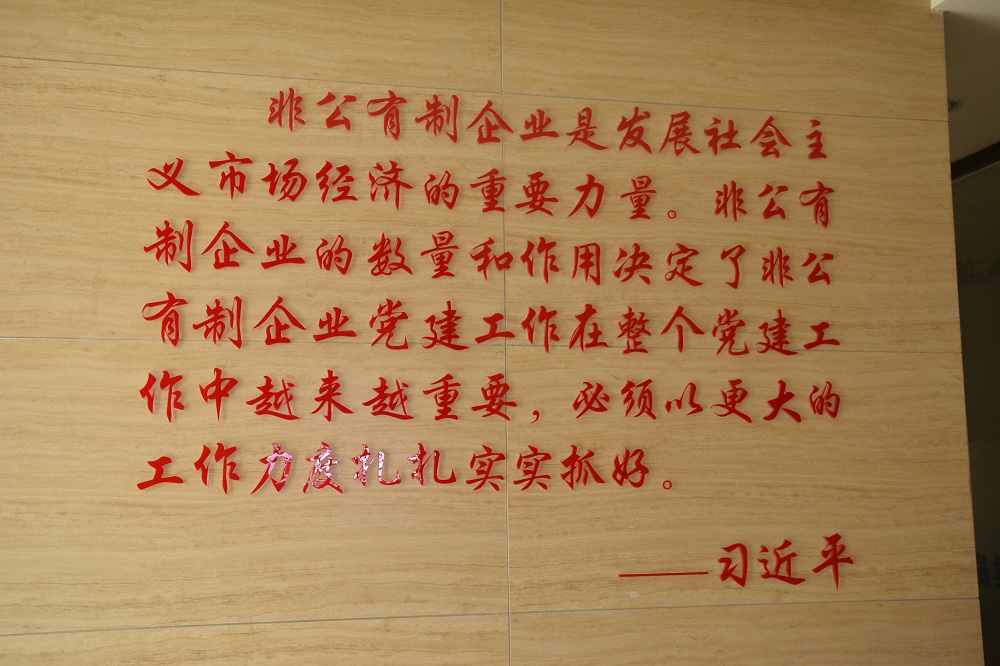 非公有制企业是发展社会主
义市场经济的重要力量。非公有
制企业的数量和作用决定了非公
有制企业党建工作在整个党建工
作中越来越重要，必须以更大的
工作力度扎扎实实抓好。
——习近平